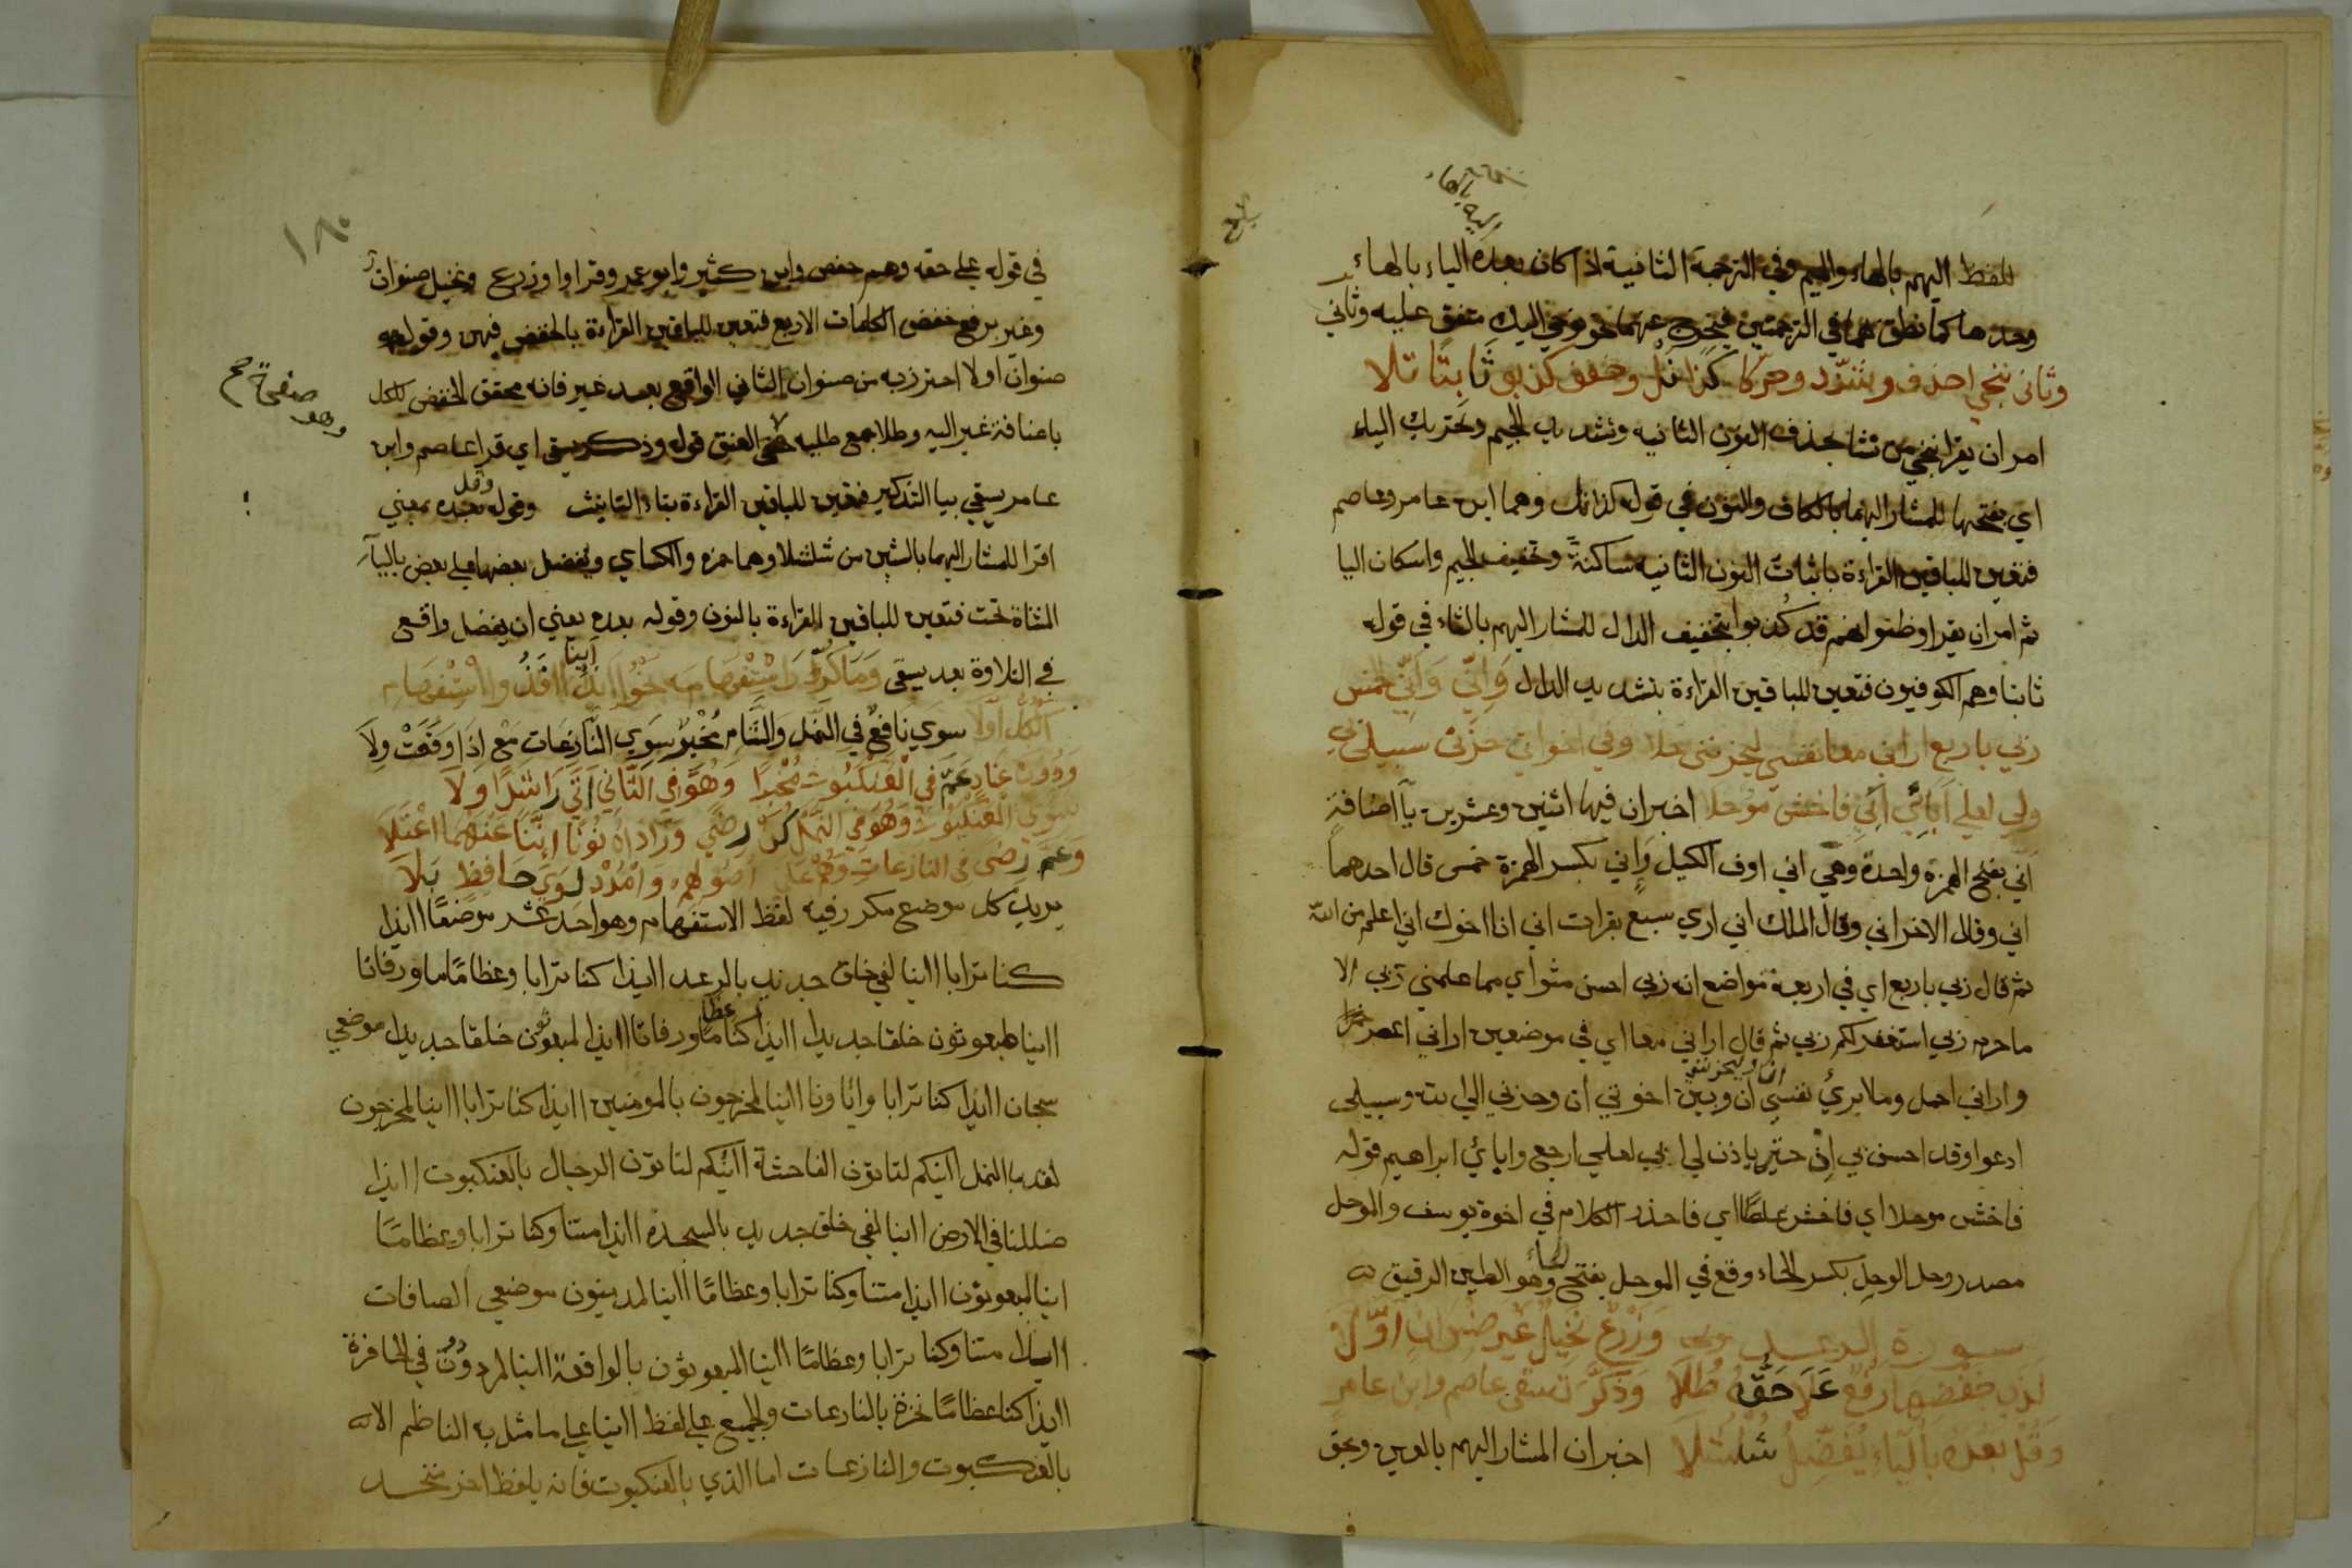 للفظ اليهم بالهاء والميم وفي الترجمة الثانية اذا كان بعده الياء بالهاء
وحدها كما نطق بهما في الترجمتين فيخرج عنهما نحو نوحي اليك متفق عليه وثاني
وثاني ننجي احذف وشدد وحركا كذا نل وخفف كذبو ثابتا تلا
امر ان يقرا ننجي من نشا بحذف النون الثانية وتشديد الجيم وتحريك الياء
اي بفتحها للمشار اليهما بالكاف والنون في قوله كذا نل وهما ابن عامر وعاصم
فتعين للباقين القراءة باثبات النون الثانية ساكنة وتخفيف الجيم واسكان اليا
ثم امر ان يقرا وظنوا انهم قد كذبوا بتخفيف الدال للمشار اليهم بالثاء في قوله
ثابتا وهم الكوفيون فتعين للباقين القراءة بتشديد الدال واني واني الخمس
ربي باربع اراني معا نفسي ليحزنني حلا وفي اخوتي حزني سبيلي بي
ولي لعلي آبائي ابي فاخش موحلا اخبر ان فيها اثنين وعشرين يآ اضافة
اني بفتح الهمزة واحدة وهي اني اوف الكيل واني بكسر الهمزة خمس قال احدهما
اني وقال الاخر اني وقال الملك اني اري سبع بقرات اني انا اخوك اني اعلم من الله
ثم قال ربي باربع اي في اربعة مواضع انه ربي احسن مثواي مما علمني ربي الا
ما رحم ربي استغفر لكم ربي ثم قال اراني معا اي في موضعين اراني اعصر خمرا
واراني احمل وما ابرئ نفسي ان وبين اخوتي ان وحزني الي الله وسبيلي
ادعوا وقد احسن بي اذ حتى ياذن لي ابي لعلي ارجع وابائي ابراهيم قوله
فاخش موحلا اي فاخش غلطا اي فاحذر الكلام في اخوة يوسف والموحل
مصدر وحل الوحل بكسر الحاء وقع في الوحل بفتح الحاء وهو الطين الرقيق
سورة الرعد وزرع نخيل غير صنوان اولا
لدى خفضها رفع علا حقه طلا وذكر تسقى عاصم وابن عامر
وقل بعده بالياء يفضل شلشلا اخبر ان المشار اليهم بالعين وبحق
في قوله علي حقه وهم حفص وابن كثير وابو عمرو قراوا وزرع ونخيل صنوان
وغير برفع خفض الكلمات الاربع فتعين للباقين القراءة بالخفض فيهن وقوله
صنوان اولا احترز به من صنوان الثاني الواقع بعد غير فانه محقق الخفض للكل
باضافة غير اليه وطلا جمع طلية العنق قوله وذكر يسقى اي قرا عاصم وابن
عامر يسقي بيا التذكير فتعين للباقين القراءة بتاء التانيث وقوله وقل بعده بمعني
اقرا للمشار اليهما بالشين من شلشلا وهما حمزه والكساي ويفضل بعضها علي بعض باليآ
المثناة تحت فتعين للباقين القراءة بالنون وقوله بعده يعني ان يفضل واقع
في التلاوة بعد يسقى وما كرر استفهامه نحو ائذا ائنا فذو استفهام
الكل اولا سوي نافع في النمل والشام مخبر سوي النازعات مع اذا وقعت ولا
ودون عناد عم في العنكبوت مخبرا وهو في الثاني اتى راشدا ولا
سوي العنكبوت وهو في النمل كن رضي وزاداه نونا اننا عنهما اعتلا
وعم رضى في النازعات وهم على اصولهم وامدد لوي حافظ بلا
يريد كل موضع مكرر فيه لفظ الاستفهام وهو احد عشر موضعا ائذا
كنا ترابا ائنا لفي خلق جديد بالرعد ائذا كنا ترابا وعظاما ورفاتا
ائنا لمبعوثون خلقا جديدا ائذا كنا عظاما ورفاتا ائنا لمبعوثون خلقا جديدا موضعي
سبحان ائذا كنا ترابا وابا ونا ائنا لمخرجون بالمومنين ائذا كنا ترابا ائنا لمخرجون
لقد بالنمل ائنكم لتاتون الفاحشة ائنكم لتاتون الرجال بالعنكبوت ائذا
ضللنا في الارض ائنا لفي خلق جديد بالسجدة ائذا متنا وكنا ترابا وعظاما
ائنا لمبعوثون ائذا متنا وكنا ترابا وعظاما ائنا لمدينون موضعي الصافات
ائذا متنا وكنا ترابا وعظاما ائنا لمبعوثون بالواقعة ائنا لمردودون في الحافرة
ائذا كنا عظاما نخرة بالنازعات والجميع علي لفظ ائنا علي ما مثل به الناظم الا
بالعنكبوت والنازعات اما الذي بالعنكبوت فانه بلفظ اخر متحد